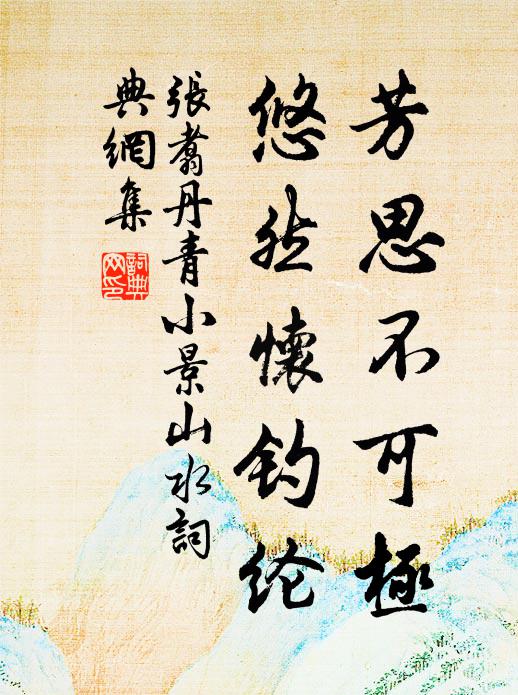 芳思不可極
悠然懷釣纶
張翥丹青小景山水詞
典網集
詞典网印